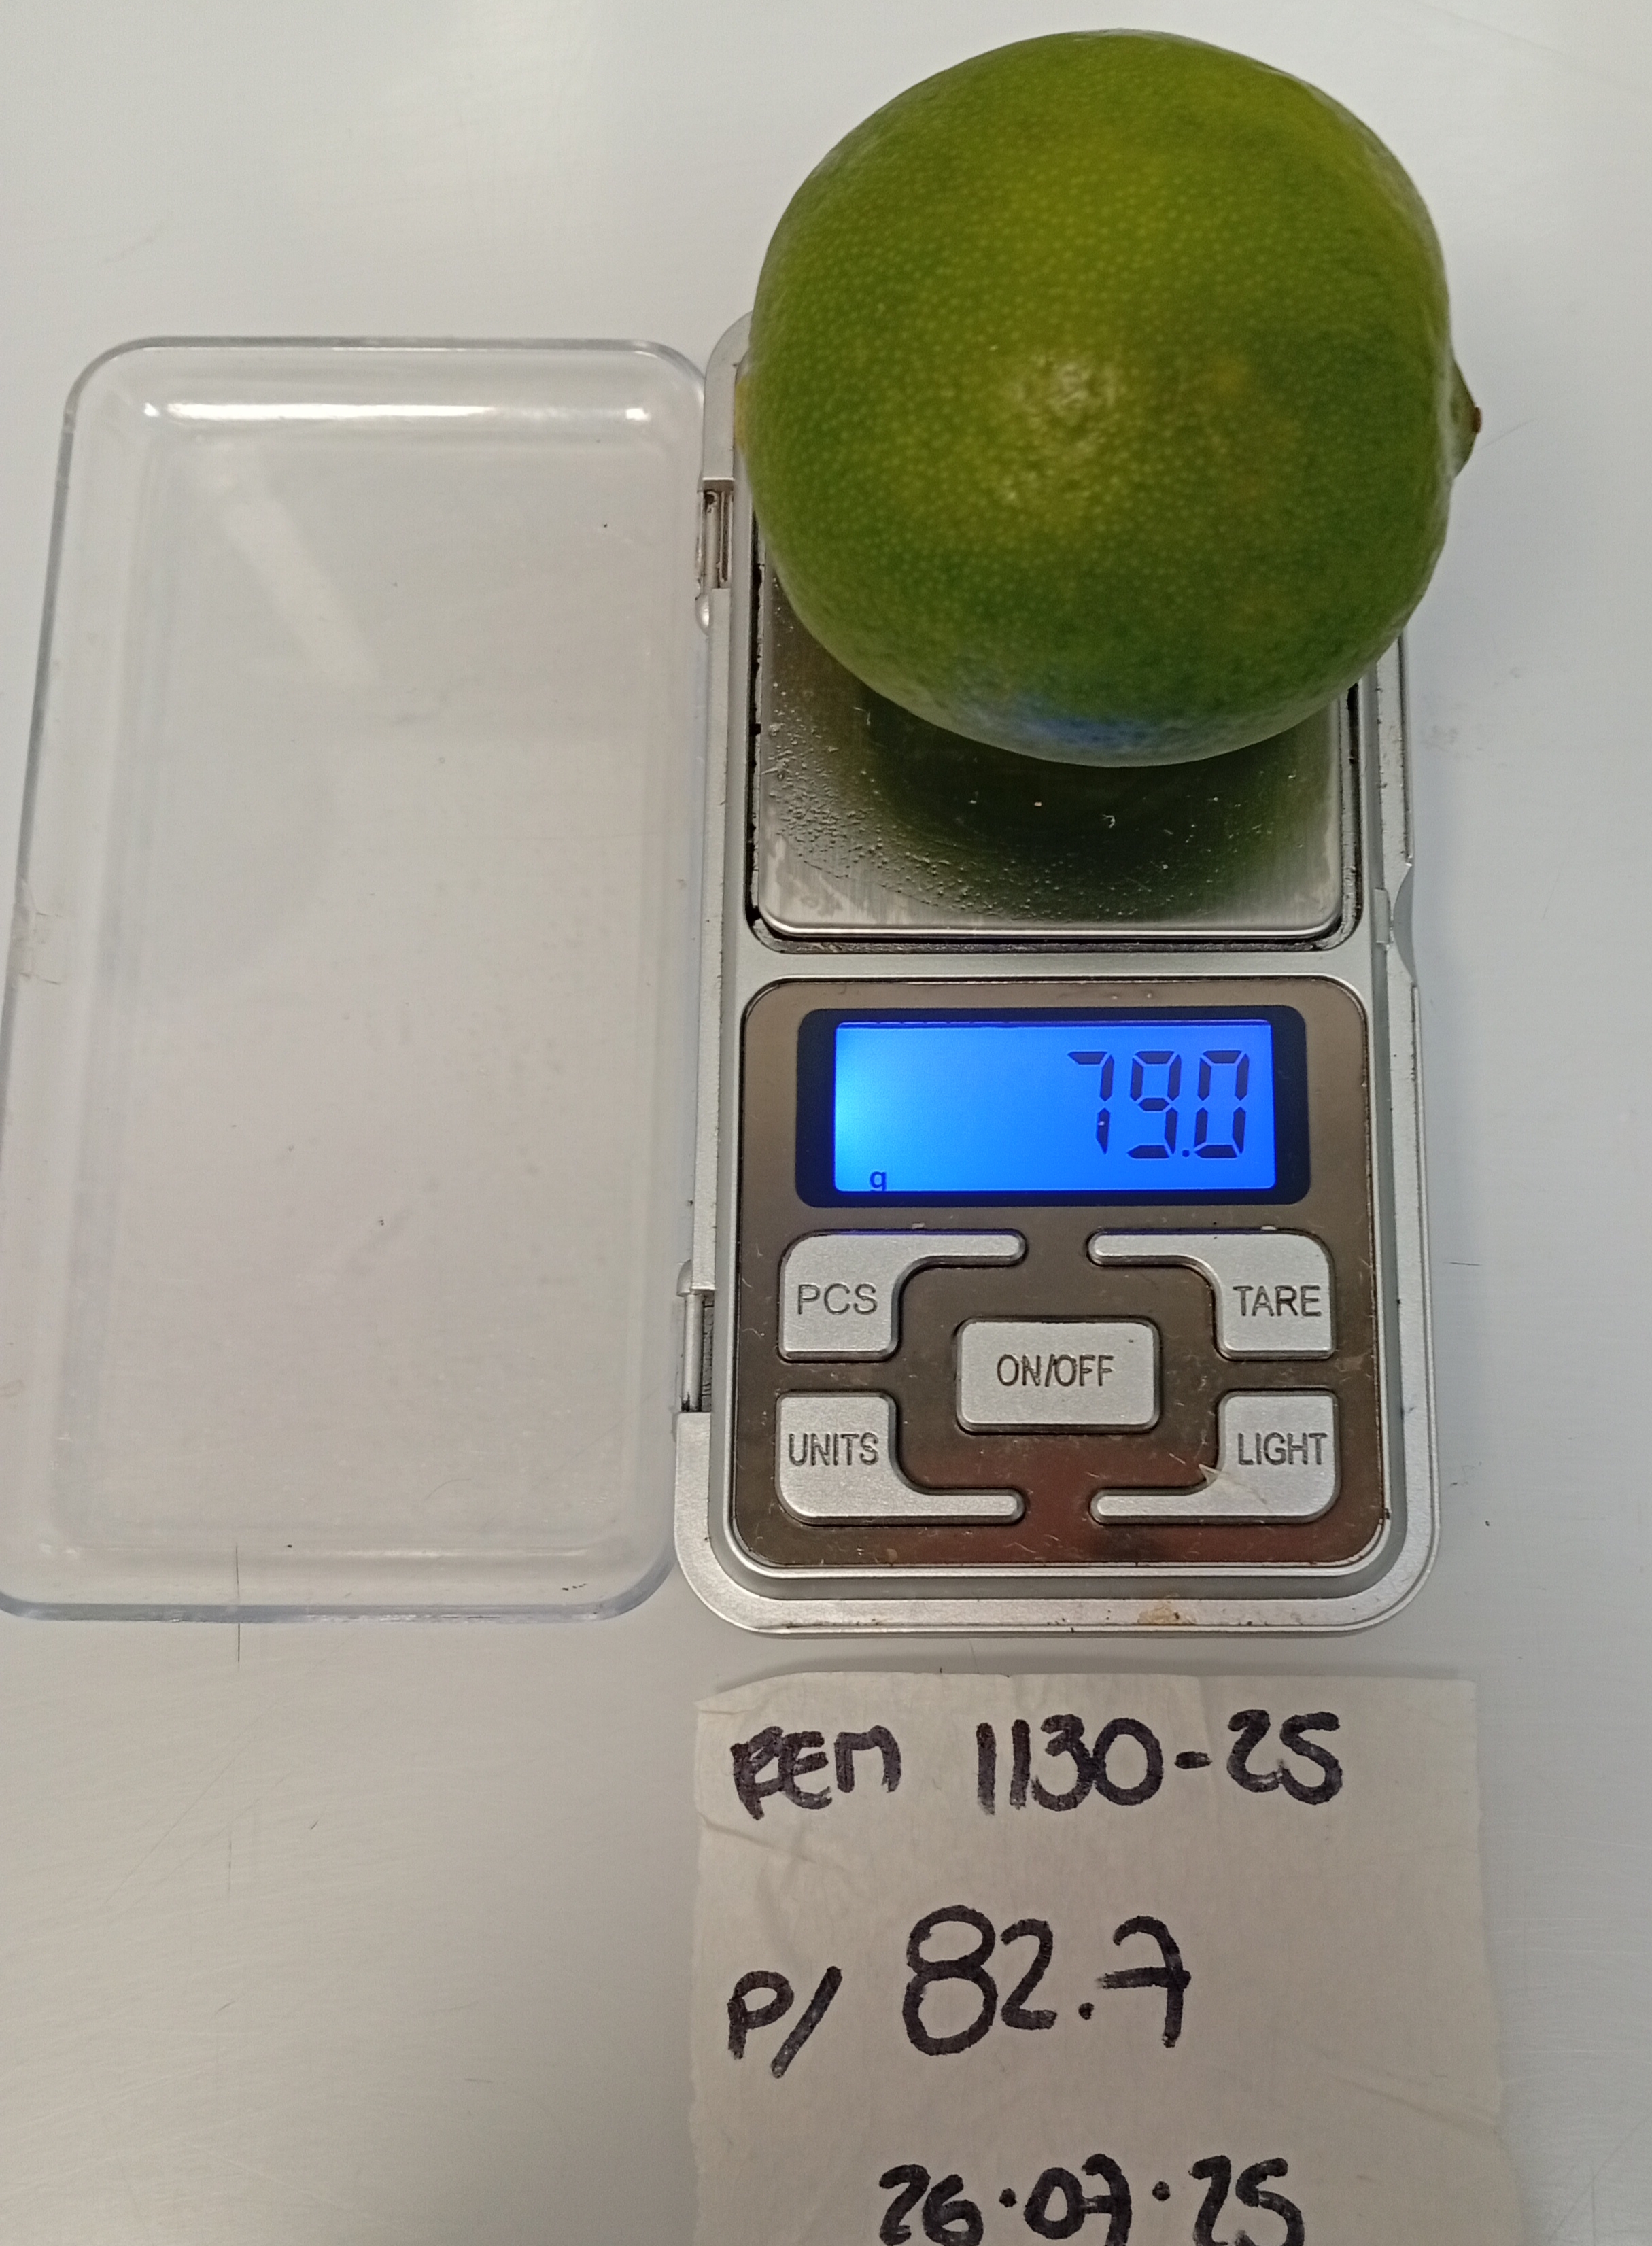 79.0
g
PCS
TARE
ON/OFF
UNITS
LIGHT
FEM 1130-25
P/ 82.7
26.07.25